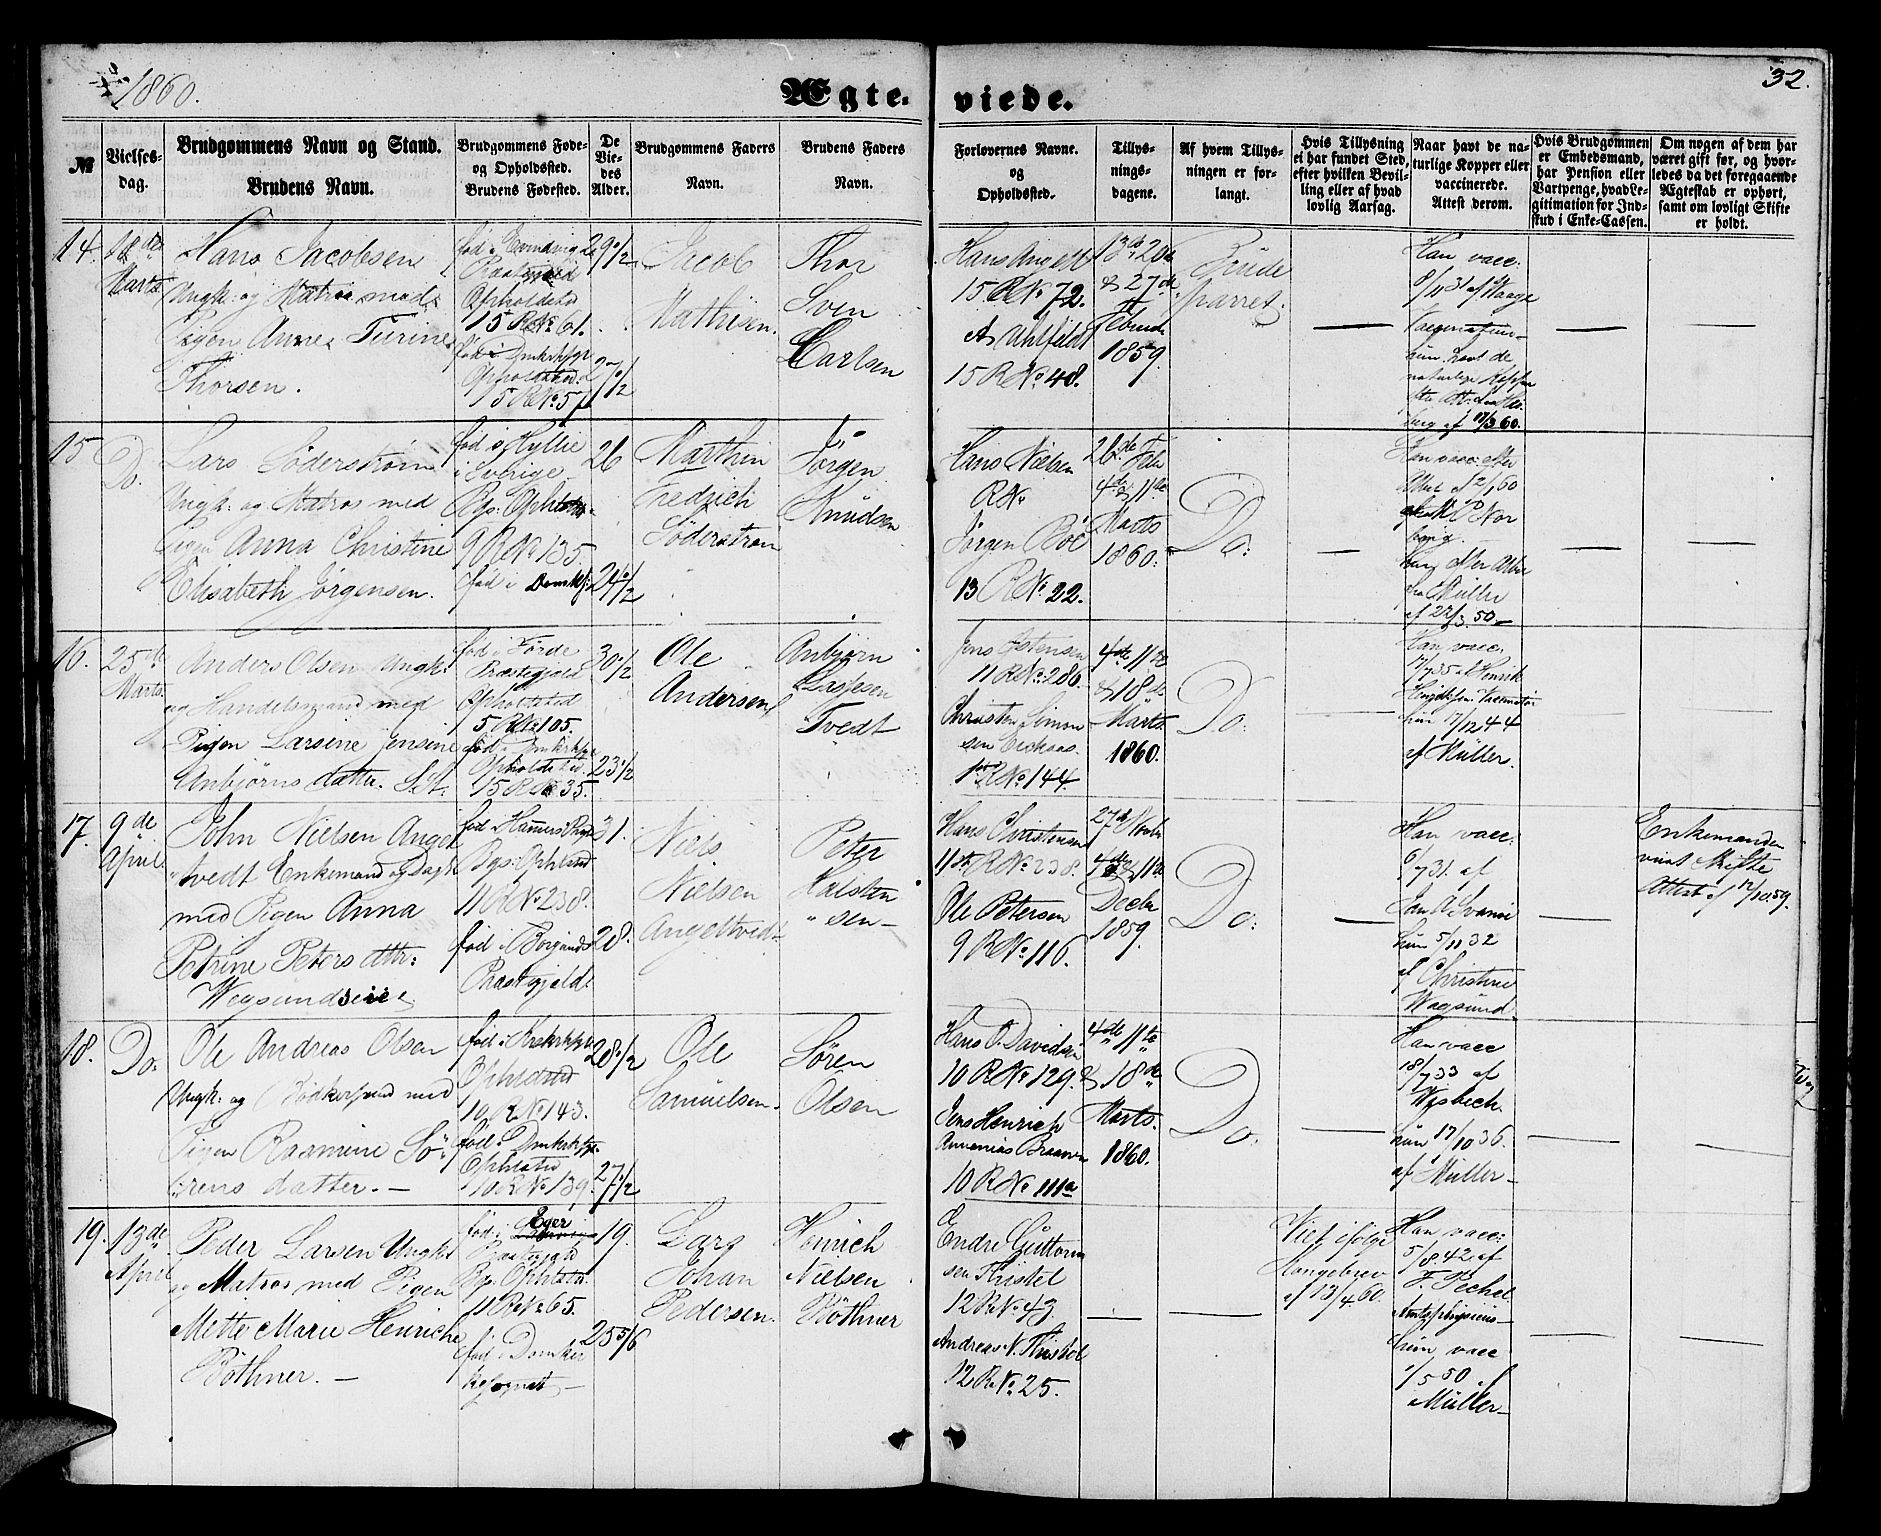 1860.
Ægte-
viede.
32.
№
Vielses-
dag.
Brudgommens Navn og Stand.
Brudens Navn.
Brudgommens Føde-
og Opholdssted.
Brudens Fødested.
De
Vie-
des
Alder.
Brudgommens Faders
Navn.
Brudens Faders
Navn.
Forlovernes Navne.
og
Opholdssted.
Tillys-
nings-
dagene.
Af hvem Tillys-
ningen er for-
langt.
Hvis Tillysning
ei har fundet Sted,
efter hvilken Bevil-
ling eller af hvad
lovlig Aarsag.
Naar havt de na-
turlige Kopper eller
vaccinerede.
Attest derom.
Hvis Brudgommen
er Embedsmand,
har Pension eller
Vartpenge, hvad Le-
gitimation for Ind-
skud i Enke-Cassen.
Om nogen af dem har
været gift før, og hvor-
ledes da det foregaaende
Ægteskab er ophørt,
samt om lovligt Skifte
er holdt.
14.
18de
Marts
Hans Jacobsen
Ungk: og Matros med
Pigen Anne Turine
Thorsen.
fød i Evindvig
Præstegjeld
Opholdsted
15 R№ 61.
fød i Dmkrkspr
Opholdsted
15 R№ 57
29½
27½
Jacob
Mathisen.
Thor
Sven
Carlsen
Hans Angell
15 R№ 72.
As Uhlfeldt
15 R№ 48.
13de 20de
& 27de
Februar
1859.
Brude
parret.
Han vacc:
8/11 31 af Waage
hun havt de
naturlige Kopper
af 17/3 60.
15
Do.
Lars Söderström
Ungk: og Matros med
Pigen Anna Christine
Elisabeth Jörgensen.
fød i Hyllie
i Sverige
Bgs: Ophldstd
9 R№ 135
fød i Domkk:
26
24½
Marthin
Fredrich
Söderström
Jörgen
Knudsen
Hans Nielsen
R№
Jörgen Böe
13 R№ 22.
26de Febr
4de & 11te
Marts
1860.
Do:
Han vacc: efter
Attest af 2/1 60
fra Müller
af 22/3 50
16.
25de
Marts
Anders Olsen Ungk:
og Handelsmand med
Pigen Larsine Jensine
Anbjörns datter.
fød i Förde
Præstegjeld
Opholdsted
5 R№ 105.
fød i Dmkrkspr
Opholdsted
15 R№ 35.
30½
23½
Ole
Andersen
Anbjörn
Lassesen
Tvedt
Jens Östensen
11 R№ 286.
Christen Simon-
sen
R№ 144.
4de 11te
& 18de
Marts
1860.
Do:
Han vacc:
17/7 35 af Henrik
hun 17/12 44
af Müller.
17.
9de
April
John Nielsen Angel
tvedt Enkemand og Dagk
med Pigen Anna
Petrine Peters dttr:
Wegsundseie.
fød i Hammers Prgj
Bgs: Ophldsted
11 R№ 238.
fød i Borgunds
Præstegjeld
31.
28.
Niels
Nielsen
Angeltvedt
Peter
Halsten
sen
Hans Christensen
11te R№ 238.
Ole Petersen
9 R№ 116.
27de Novbr
4de & 11te
Decbr
1859.
Do:
Han vacc:
6/7 31. af
hun 5/11 32
af Christine
Wegsund.
Enkemanden
viist Skifte
Attest af 12/10 59.
18.
Do:
Ole Andreas Olsen
Ungk: og Bödkersvend med
Pigen Rasmine Sö-
rens datter.
fød i Krskrkspr
Ophldsted
10 R№ 143.
fød i Dmkrkspr
Ophldsted
10 R№ 139.
28½
27½
Ole
Samuelsen.
Sören
Olsen
Hans O. Davidsen
10 R№ 129.
Jens Henrich
Annanias Braaven
10 R№ 111a
4de 11te
& 18de
Marts.
1860.
Do.
Han vacc
18/7 33 af
Wisbech.
hun 17/10 36.
af Müller
19.
13de
April
Peder Larsen Ungkl
og Matros med Pigen
Mette Marie Henriche
Böthner.
fød i Eger
Præstegjeld
Bgs: Ophldstd:
11 R№ 65.
fød i Domkir
kesognet
19.
25 5/6
Lars
Johan
Pedersen.
Henrich
Nielsen
Böthner
Endre Guttorm
sen Tristel
12 R№ 43
Andreas N. Thistel
12 R№ 25.
Viet ifölge
Kongebrev
af 13/4 60.
Han vacc:
5/8 42 af
F. Pechel
Amtsphysicus
hun vacc
1/5 50 af
Müller